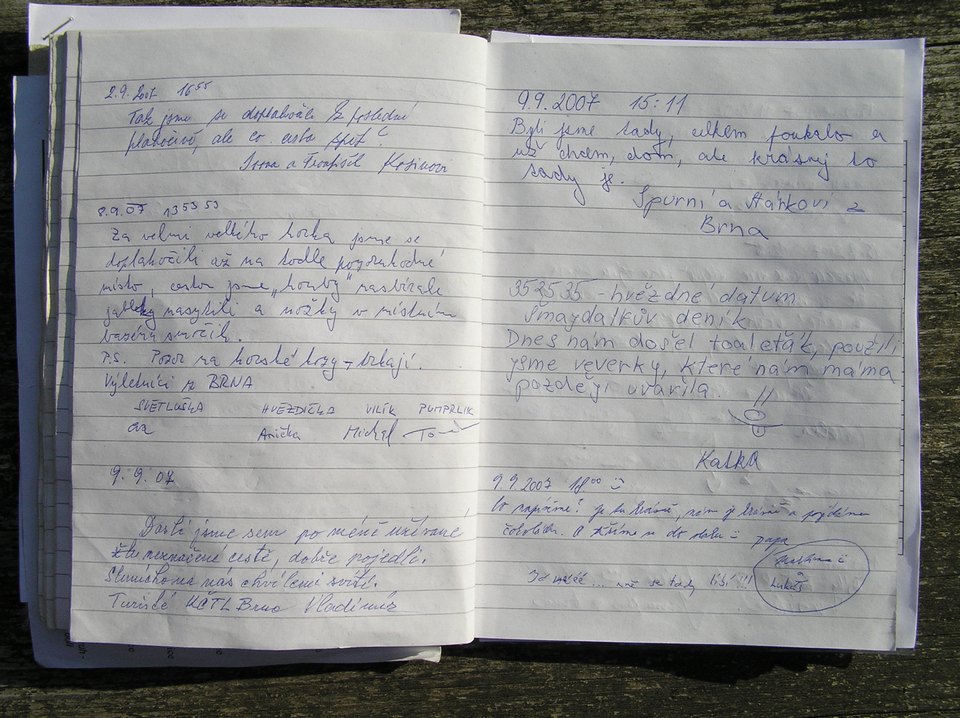 2.9. 2007 16 55
Tak jsme se doplahočili z poslední
ale co cesta zpět?
a František
8.9.07 13 53 53
Za velmi velkého horka jsme se
doplahočili až na todle pozoruhodné
místo, cestou jsme „houby“ nasbírali
jablky nasytili a nožky v místním
bazénu smočili.
P.S. Pozor na horské kozy – trkají.
Výletníci z BRNA
SVĚTLUŠKA HVĚZDIČKA VILÍK PUMPRLÍK
Eva Anička Michal Tomáš
9. 9. 07
Došli jsme sem po méně užívané
žlutě neznačené cestě, dobře pojedli.
Sluníčko na nás chvílemi svítí.
Turisté KČT Brno Vladimír
9.9.2007 15:11
Byli jsme tady, celkem foukalo a
už chcem, dom, ale krásný to
tady je.
Spurní a Stárkovi z
Brna
352535 - hvězdné datum
Šmajdalkův deník
Dnes nám došel toaleťák, použili
jsme veverky, které nám máma
později uvařila.
Katka
9.9.2007 18 00
to napínavé! je tu krásně,
čokoládu. papa
se tady líbí !!!
Lukáš